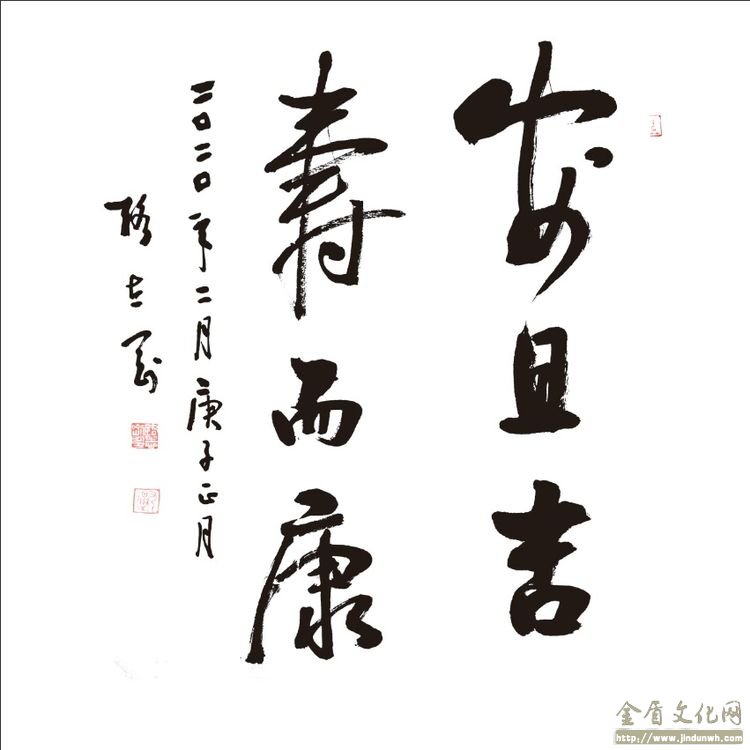 安且吉
寿而康
二〇二〇年二月庚子正月
金盾文化网
http://www.jindunwh.com